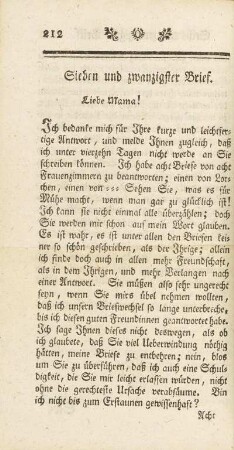 212
Sieben und zwanzigster Brief.
Liebe Mama!
Ich bedanke mich für Ihre kurze und leichtfer-
tige Antwort, und melde Ihnen zugleich, daß
ich unter vierzehn Tagen nicht werde an Sie
schreiben können. Ich habe acht Briefe von acht
Frauenzimmern zu beantworten; einen von Lor-
chen, einen von === Sehen Sie, was es für
Mühe macht, wenn man gar zu glücklich ist!
Ich kann sie nicht einmal alle überzählen; doch
Sie werden mir schon auf mein Wort glauben.
Es ist wahr, es ist unter allen den Briefen kei-
ner so schön geschrieben, als der Ihrige; allein
ich finde doch auch in allen mehr Freundschaft,
als in dem Ihrigen, und mehr Verlangen nach
einer Antwort. Sie müßen also sehr ungerecht
seyn, wenn Sie mirs übel nehmen wollten,
daß ich unsern Briefwechsel so lange unterbreche,
bis ich diesen guten Freundinnen geantwortet habe.
Ich sage Ihnen dieses nicht deswegen, als ob
ich glaubete, daß Sie viel Ueberwindung nöthig
hätten, meine Briefe zu entbehren; nein, blos
um Sie zu überführen, daß ich auch eine Schul-
digkeit, die Sie mir leicht erlassen würden, nicht
ohne die gerechteste Ursache verabsäume. Bin
ich nicht bis zum Erstaunen gewissenhaft?
Acht